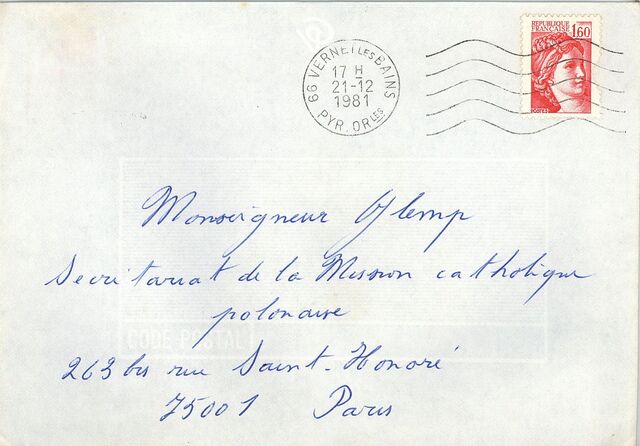 66 VERNET LES BAINS
17 H
21-12
1981
PYR. ORLES
REPUBLIQUE
FRANÇAISE
1,60
POSTES
Monseigneur Glemp
Secrétariat de la Mission catholique
polonaise
CODE POSTAL
263 bis rue Saint-Honoré
75001 Paris